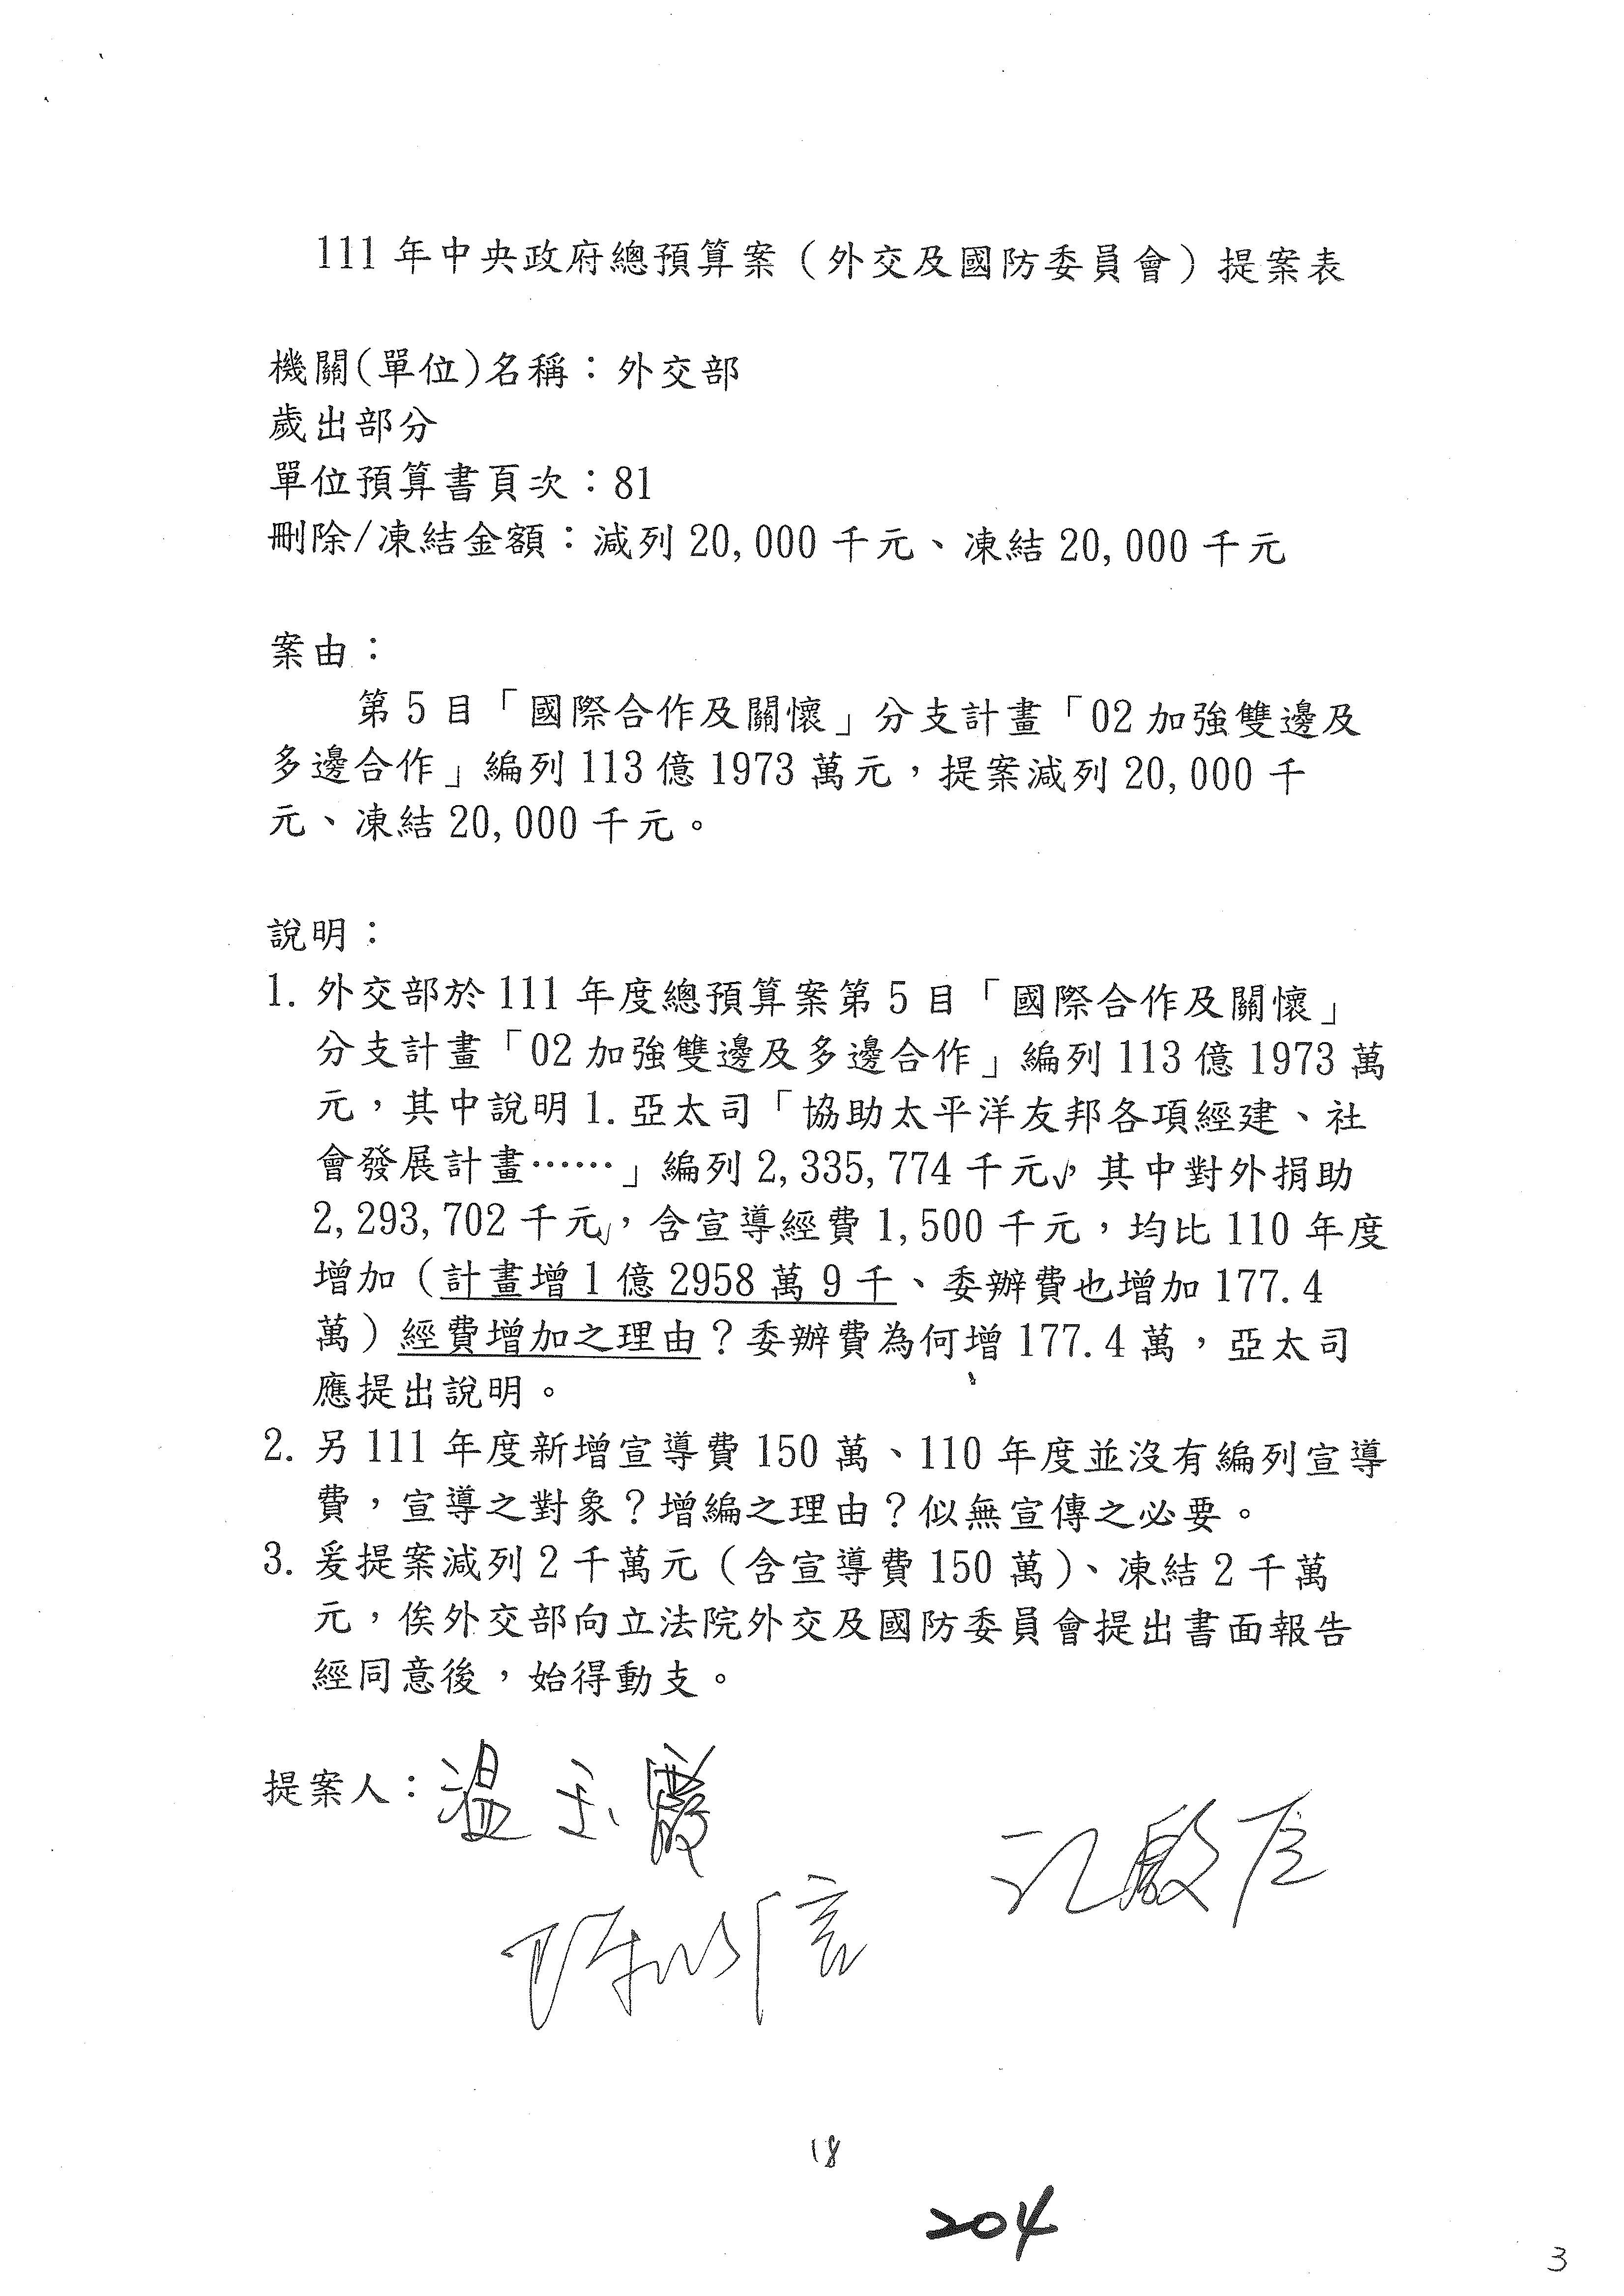 111 年中央政府總預算案（外交及國防委員會）提案表
機關(單位)名稱：外交部
歲出部分
單位預算書頁次：81
刪除/凍結金額：減列 20,000 千元、凍結 20,000 千元
案由：
第 5 目「國際合作及關懷」分支計畫「02 加強雙邊及
多邊合作」編列 113 億 1973 萬元，提案減列 20,000 千
元、凍結 20,000 千元。
說明：
1. 外交部於 111 年度總預算案第 5 目「國際合作及關懷」
分支計畫「02 加強雙邊及多邊合作」編列 113 億 1973 萬
元，其中說明 1. 亞太司「協助太平洋友邦各項經建、社
會發展計畫……」編列 2,335,774 千元，其中對外捐助
2,293,702 千元，含宣導經費 1,500 千元，均比 110 年度
增加（計畫增 1 億 2958 萬 9 千、委辦費也增加 177.4
萬）經費增加之理由？委辦費為何增 177.4 萬，亞太司
應提出說明。
2. 另 111 年度新增宣導費 150 萬、110 年度並沒有編列宣導
費，宣導之對象？增編之理由？似無宣傳之必要。
3. 爰提案減列 2 千萬元（含宣導費 150 萬）、凍結 2 千萬
元，俟外交部向立法院外交及國防委員會提出書面報告
經同意後，始得動支。
提案人：溫玉霞
江啟臣
18
204
3